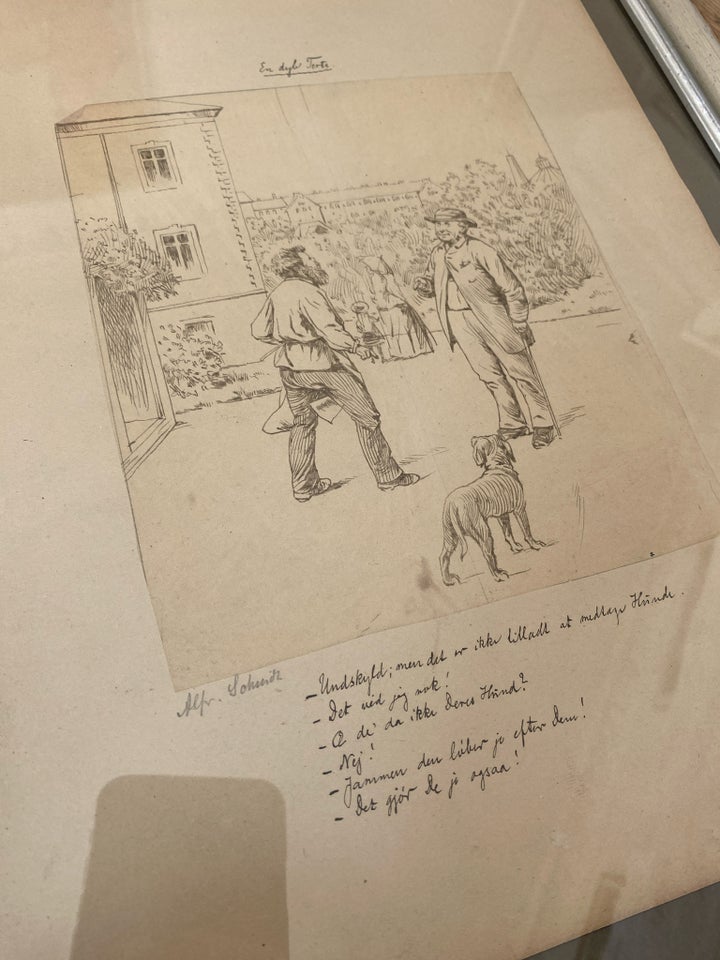 En dyb
Alfr. Schmidt
– Undskyld; men det er ikke tilladt at medtage Hunde.
– Det ved jeg nok!
– Æ de' da ikke Deres Hund?
– Nej!
– Jammen den løber jo efter Dem!
– Det gjør De jo ogsaa!